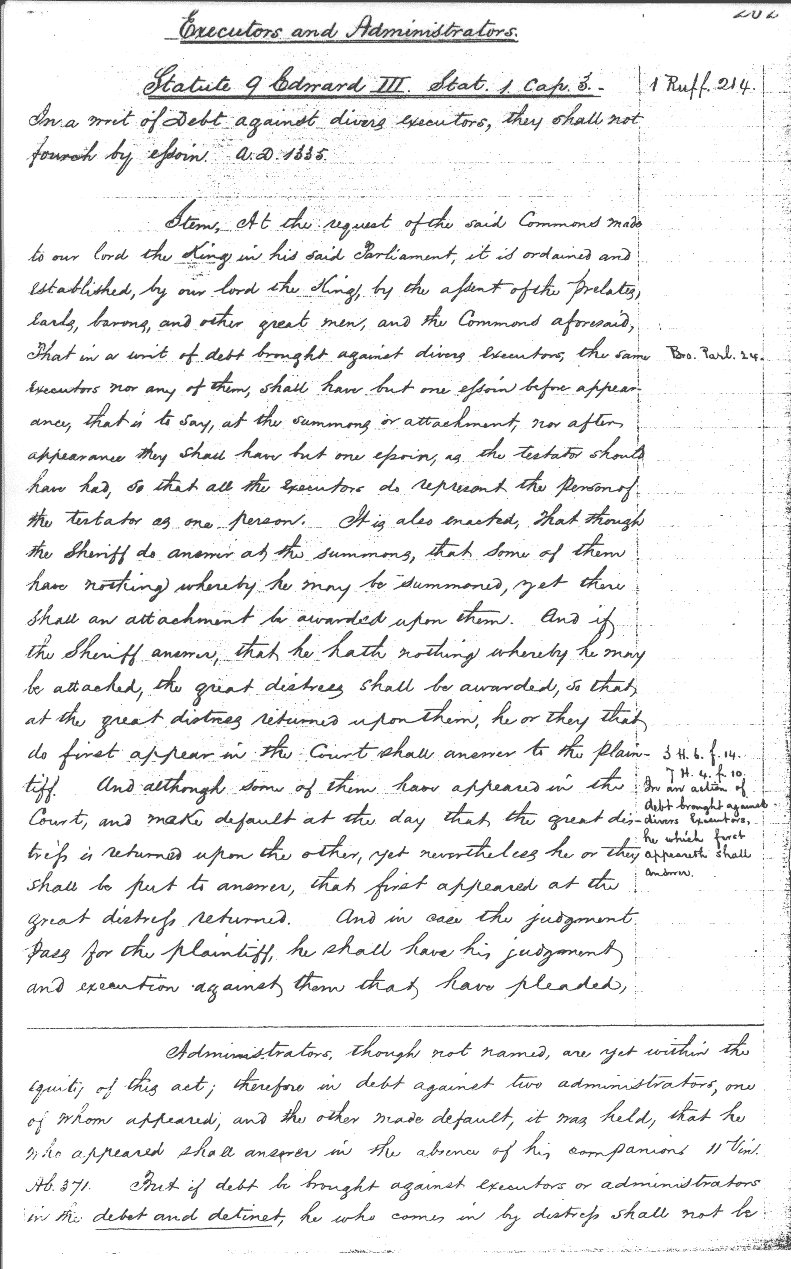 202
Executors and Administrators.
Statute 9 Edward III. Stat. 1. Cap. 3. -
1 Ruff. 214.
In a writ of Debt against divers executors, they shall not
fourch by essoin. A.D. 1335.
Item, At the request of the said Commons made
to our lord the King in his said Parliament, it is ordained and
established, by our lord the King, by the assent of the prelates,
Earls, barons, and other great men, and the Commons aforesaid,
That in a writ of debt brought against divers executors, the same
Bro. Parl. 24.
executors nor any of them, shall have but one essoin before appear-
ance, that is to say, at the summons or attachment, nor after
appearance they shall have but one essoin, as the testator should
have had, so that all the executors do represent the person of
the testator as one person. It is also enacted, That though
the Sheriff do answer at the summons, that some of them
have nothing whereby he may be summoned, yet there
shall an attachment be awarded upon them. And if
the Sheriff answer, that he hath nothing whereby he may
be attached, the great distress shall be awarded, so that
at the great distress returned upon them, he or they that
do first appear in the Court shall answer to the plain-
tiff. And although some of them have appeared in the
Court, and make default at the day that the great dis-
tress is returned upon the other, yet nevertheless he or they
shall be put to answer, that first appeared at the
great distress returned. And in case the judgment
pass for the plaintiff, he shall have his judgment
and execution against them that have pleaded,
3 H. 6. f. 14.
7 H. 4. f. 10.
In an action of
debt brought against
divers Executors,
he which first
appeareth shall
answer.
Administrators, though not named, are yet within the
equity of this act; therefore in debt against two administrators, one
of whom appeared, and the other made default, it was held, that he
who appeared shall answer in the absence of his companions 11 Vin.
Ab. 371. But if debt be brought against executors or administrators
in the debet and detinet, he who comes in by distress shall not be